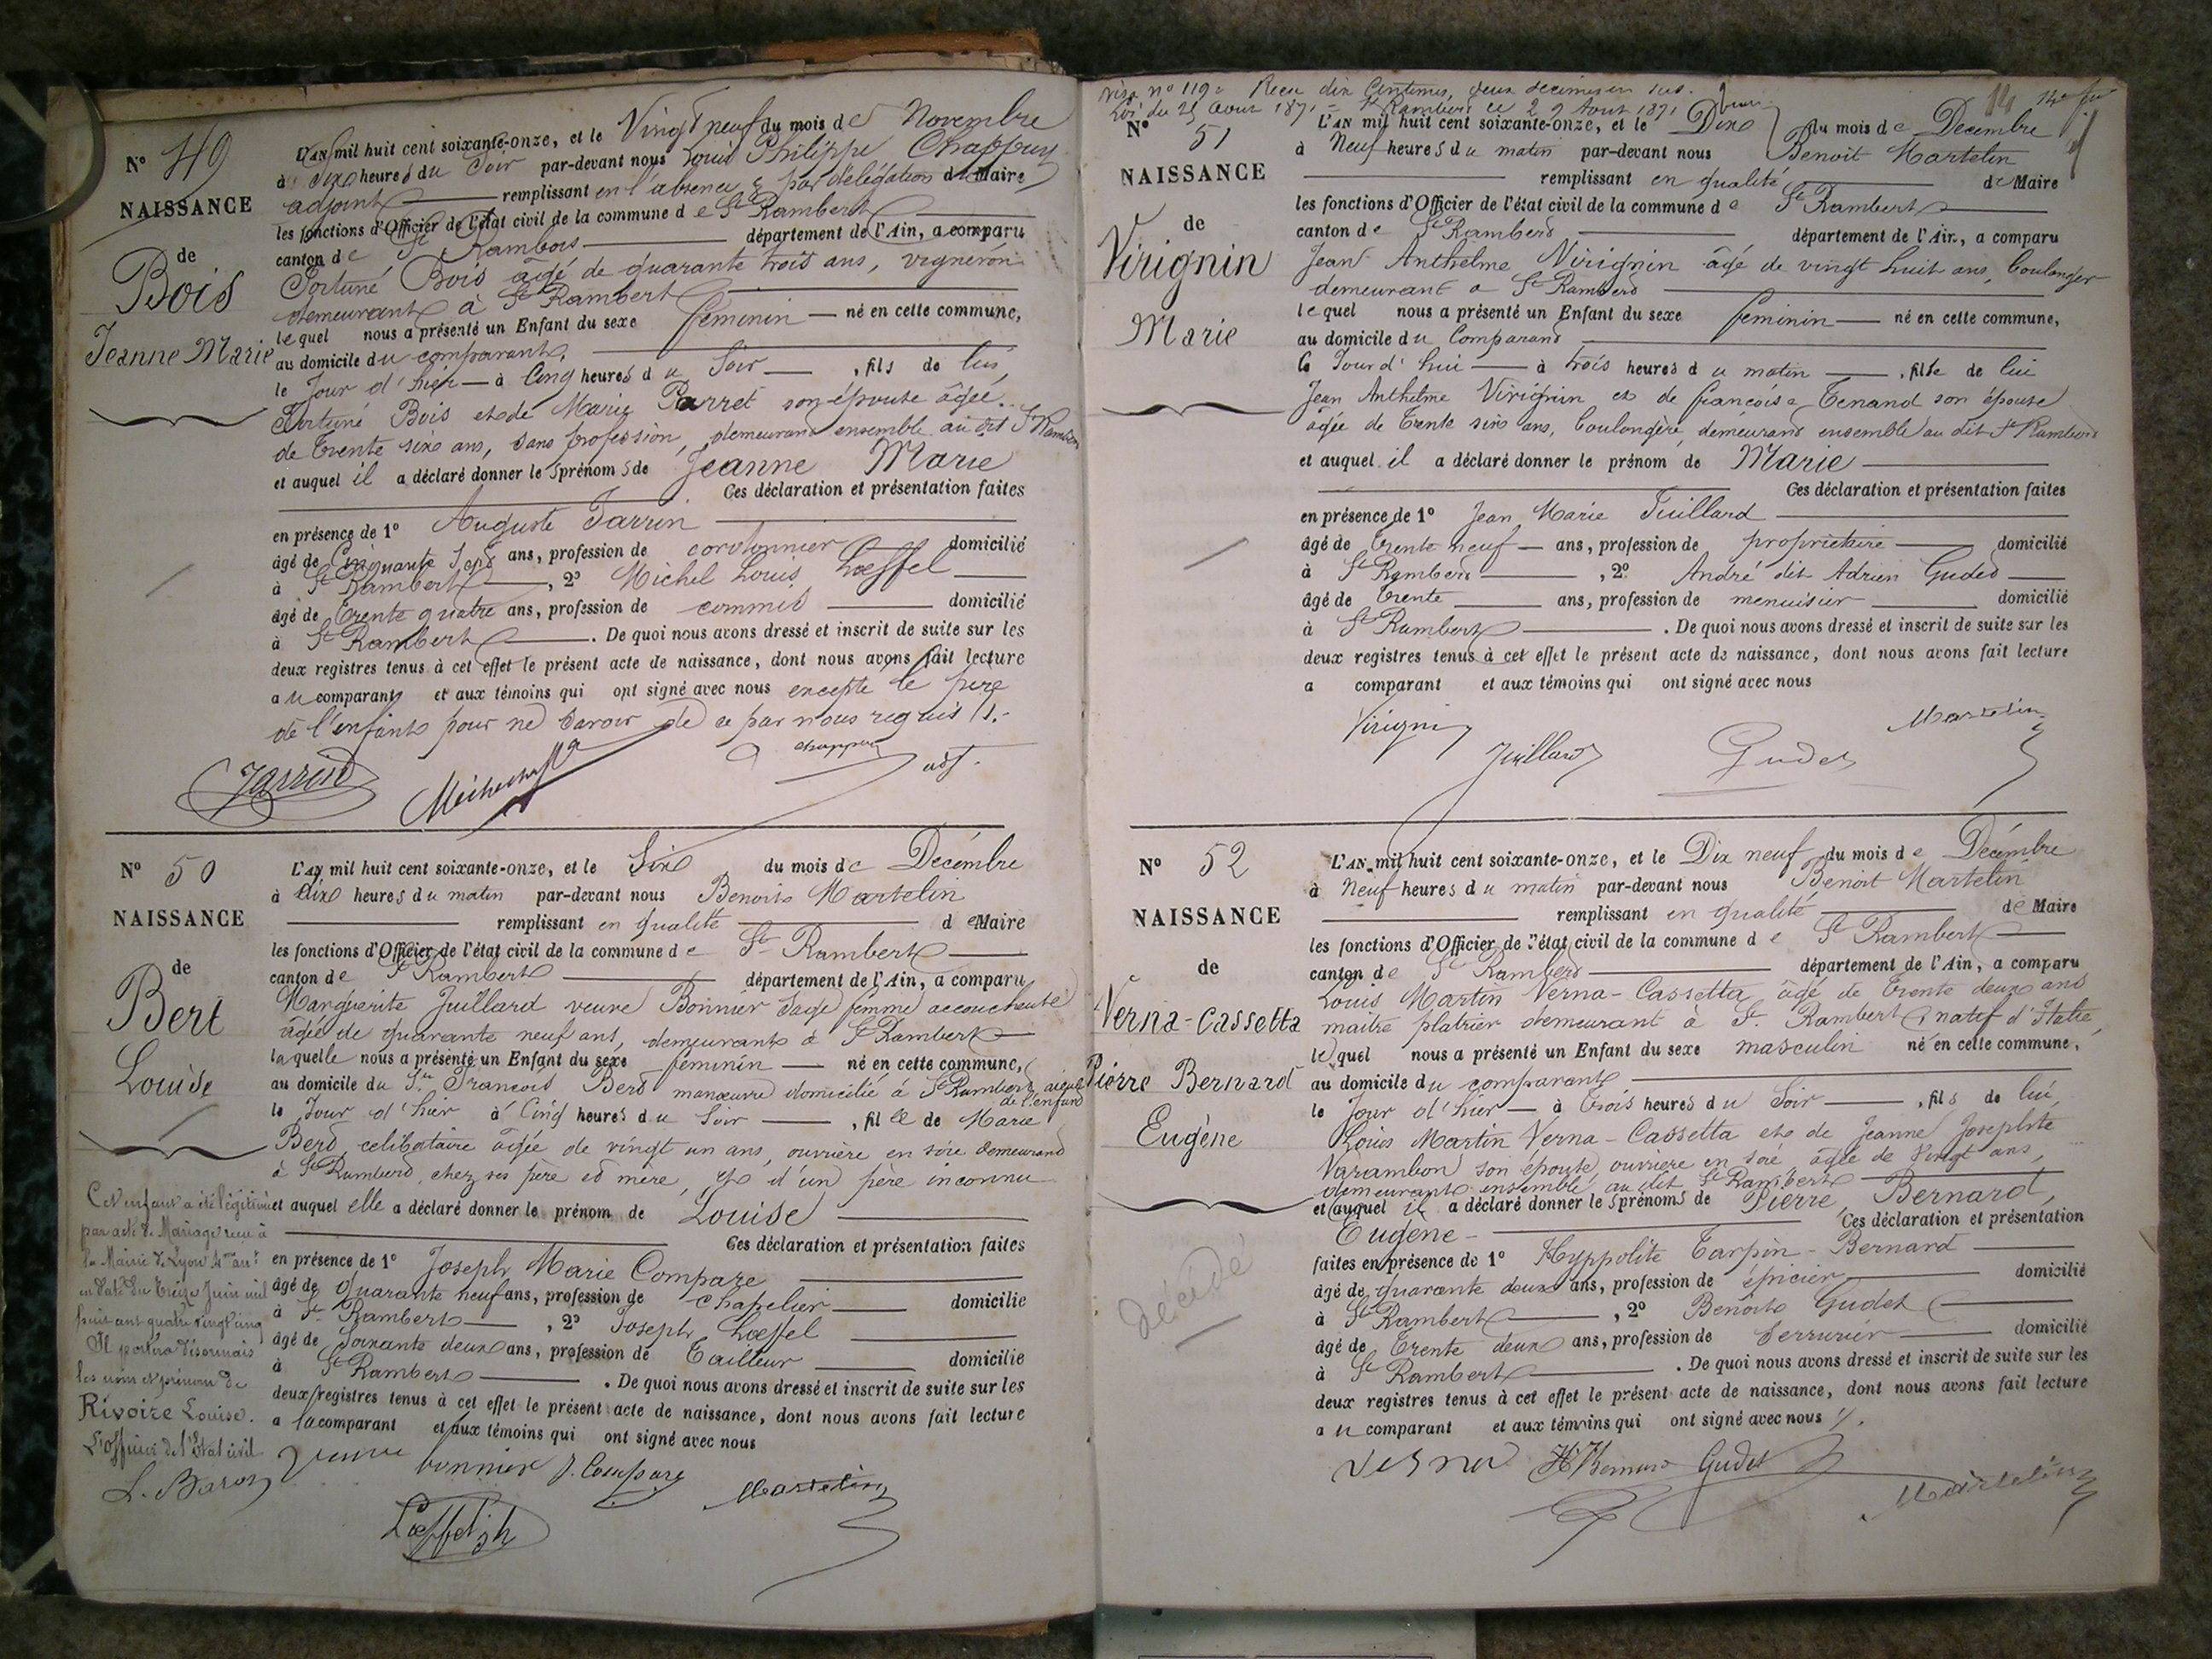 N° 49
NAISSANCE
de
Bois
Jeanne Marie
L'AN mil huit cent soixante-onze, et le Vingt neuf du mois de Novembre
à Six heures du Soir par-devant nous Louis Philippe Chappuy
adjoint remplissant en l'absence & par délégation du Maire
les fonctions d'Officier de l'état civil de la commune de St Rambert
canton de St Rambert département de l'Ain, a comparu
Fortuné Bois âgé de quarante trois ans, vigneron
demeurant à St Rambert
lequel nous a présenté un Enfant du sexe féminin né en cette commune,
au domicile du comparant,
le Jour d'hier à Cinq heures du Soir , fils de lui,
Fortuné Bois et de Marie Parret son épouse âgée
de trente six ans, sans profession, demeurant ensemble au dit St Rambert
et auquel il a déclaré donner les prénoms de Jeanne Marie
Ces déclaration et présentation faites
en présence de 1° Auguste Jarrin
âgé de Cinquante Sept ans, profession de cordonnier domicilié
à St Rambert , 2° Michel Louis Lœffel
âgé de trente quatre ans, profession de commis domicilié
à St Rambert . De quoi nous avons dressé et inscrit de suite sur les
deux registres tenus à cet effet le présent acte de naissance, dont nous avons fait lecture
au comparant et aux témoins qui ont signé avec nous excepté le père
de l'enfant pour ne savoir de ce par nous requis /.
Jarrin
chappuy adj.
N° 50
NAISSANCE
de
Bert
Louise
L'AN mil huit cent soixante-onze, et le Six du mois de Décembre
à dix heures du matin par-devant nous Benoit Martelin
remplissant en qualité de Maire
les fonctions d'Officier de l'état civil de la commune de St Rambert
canton de St Rambert département de l'Ain, a comparu
Marguerite Juillard veuve Bonnier Sage femme accoucheuse
âgée de quarante neuf ans, demeurant à St Rambert
laquelle nous a présenté un Enfant du sexe féminin né en cette commune,
au domicile du Sr François Bert manœuvre domicilié à St Rambert aïeul
de l'enfant
le Jour d'hier à Cinq heures du Soir , fille de Marie
Bert célibataire âgée de vingt un ans, ouvrière en soie demeurant
à St Rambert, chez ses père et mère, et d'un père inconnu
et auquel elle a déclaré donner le prénom de Louise
Ces déclaration et présentation faites
en présence de 1° Joseph Marie Compare
âgé de quarante neuf ans, profession de chapelier domicilié
à St Rambert , 2° Joseph Lœffel
âgé de Soixante deux ans, profession de Tailleur domicilié
à St Rambert . De quoi nous avons dressé et inscrit de suite sur les
deux registres tenus à cet effet le présent acte de naissance, dont nous avons fait lecture
a la comparant et aux témoins qui ont signé avec nous
Cet enfant a été légitimé
par acte de Mariage reçu à
la Mairie de Lyon 4me arrt
en date du treize Juin mil
huit cent quatre vingt cinq
Il portera désormais
les nom et prénom de
Rivoire Louise.
L'officier de l'Etat civil
L. Baron
Veuve bonnier J. Compare Martelin
Lœffel jh
visa n° 119. Reçu dix Centimes, deux décimes en sus.
Loi du 23 Aout 1871 = St Rambert le 29 Aout 1871
14
N° 51
NAISSANCE
de
Virignin
Marie
L'AN mil huit cent soixante-onze, et le Dix du mois de Décembre
à Neuf heures du matin par-devant nous Benoit Martelin
remplissant en qualité de Maire
les fonctions d'Officier de l'état civil de la commune de St Rambert
canton de St Rambert département de l'Ain, a comparu
Jean Anthelme Virignin âgé de vingt huit ans, boulanger
demeurant à St Rambert
lequel nous a présenté un Enfant du sexe féminin né en cette commune,
au domicile du Comparant
le Jour d'hui à trois heures du matin , fille de lui
Jean Anthelme Virignin et de françoise Tenand son épouse
âgée de trente six ans, boulangère, demeurant ensemble au dit St Rambert
et auquel il a déclaré donner le prénom de Marie
Ces déclaration et présentation faites
en présence de 1° Jean Marie Juillard
âgé de trente neuf ans, profession de propriétaire domicilié
à St Rambert , 2° André dit Adrien Gudet
âgé de trente ans, profession de menuisier domicilié
à St Rambert . De quoi nous avons dressé et inscrit de suite sur les
deux registres tenus à cet effet le présent acte de naissance, dont nous avons fait lecture
a comparant et aux témoins qui ont signé avec nous
Virignin Juillard Gudet Martelin
N° 52
NAISSANCE
de
Verna-Cassetta
Pierre Bernard
Eugène
décédé
L'AN mil huit cent soixante-onze, et le Dix neuf du mois de Décembre
à Neuf heures du matin par-devant nous Benoit Martelin
remplissant en qualité de Maire
les fonctions d'Officier de l'état civil de la commune de St Rambert
canton de St Rambert département de l'Ain, a comparu
Louis Martin Verna-Cassetta âgé de trente deux ans
maitre platrier demeurant à St Rambert, natif d'Italie,
lequel nous a présenté un Enfant du sexe masculin né en cette commune,
au domicile du comparant
le Jour d'hier à trois heures du Soir , fils de lui,
Louis Martin Verna-Cassetta et de Jeanne Josephte
Varambon son épouse, ouvrière en soie âgée de vingt ans,
demeurant ensemble au dit St Rambert
et auquel il a déclaré donner les prénoms de Pierre, Bernard,
Eugène Ces déclaration et présentation
faites en présence de 1° Hyppolite Tarpin-Bernard
âgé de quarante deux ans, profession de épicier domicilié
à St Rambert , 2° Benoit Gudet
âgé de trente deux ans, profession de Serrurier domicilié
à St Rambert . De quoi nous avons dressé et inscrit de suite sur les
deux registres tenus à cet effet le présent acte de naissance, dont nous avons fait lecture
au comparant et aux témoins qui ont signé avec nous /.
Verna H Bernard Gudet Martelin